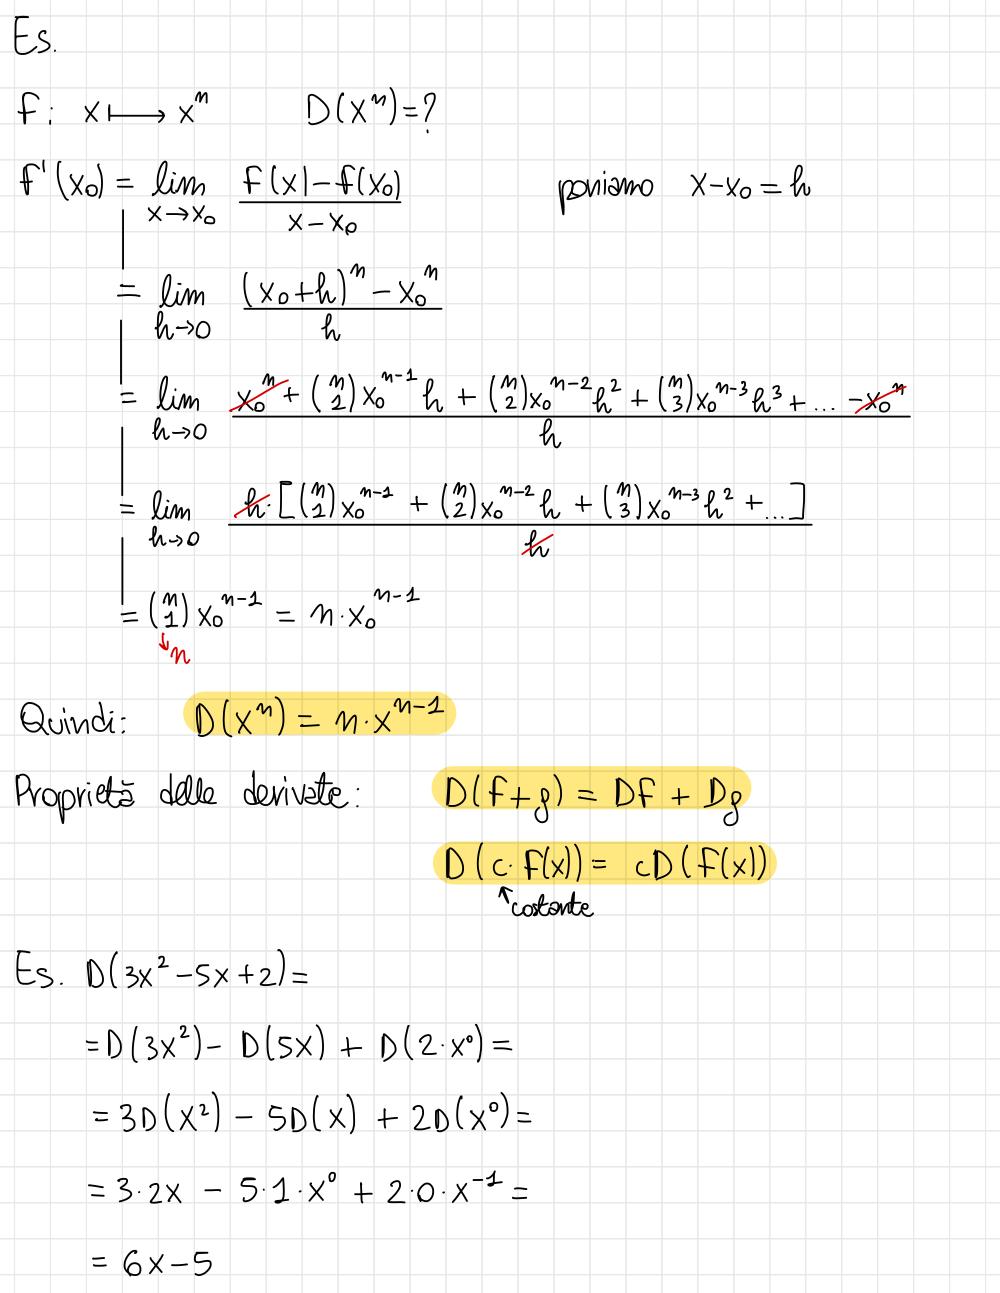 Es.
f: x ⟼ xⁿ   D(xⁿ)=?
f'(x₀) = lim_{x→x₀} (f(x)-f(x₀))/(x-x₀)   poniamo x-x₀=h
= lim_{h→0} ((x₀+h)ⁿ - x₀ⁿ)/h
= lim_{h→0} (x₀ⁿ + (n 1) x₀ⁿ⁻¹ h + (n 2) x₀ⁿ⁻² h² + (n 3) x₀ⁿ⁻³ h³ + ... - x₀ⁿ)/h
= lim_{h→0} (h·[(n 1) x₀ⁿ⁻¹ + (n 2) x₀ⁿ⁻² h + (n 3) x₀ⁿ⁻³ h² + ...])/h
= (n 1) x₀ⁿ⁻¹ = n·x₀ⁿ⁻¹
↳n
Quindi: D(xⁿ) = n·xⁿ⁻¹
Proprietà delle derivate: D(f+g) = Df + Dg
D(c·f(x)) = cD(f(x))
↖costante
Es. D(3x²-5x+2)=
=D(3x²)- D(5x) + D(2·x⁰) =
= 3D(x²) - 5D(x) + 2D(x⁰)=
= 3·2x - 5·1·x⁰ + 2·0·x⁻¹ =
= 6x-5